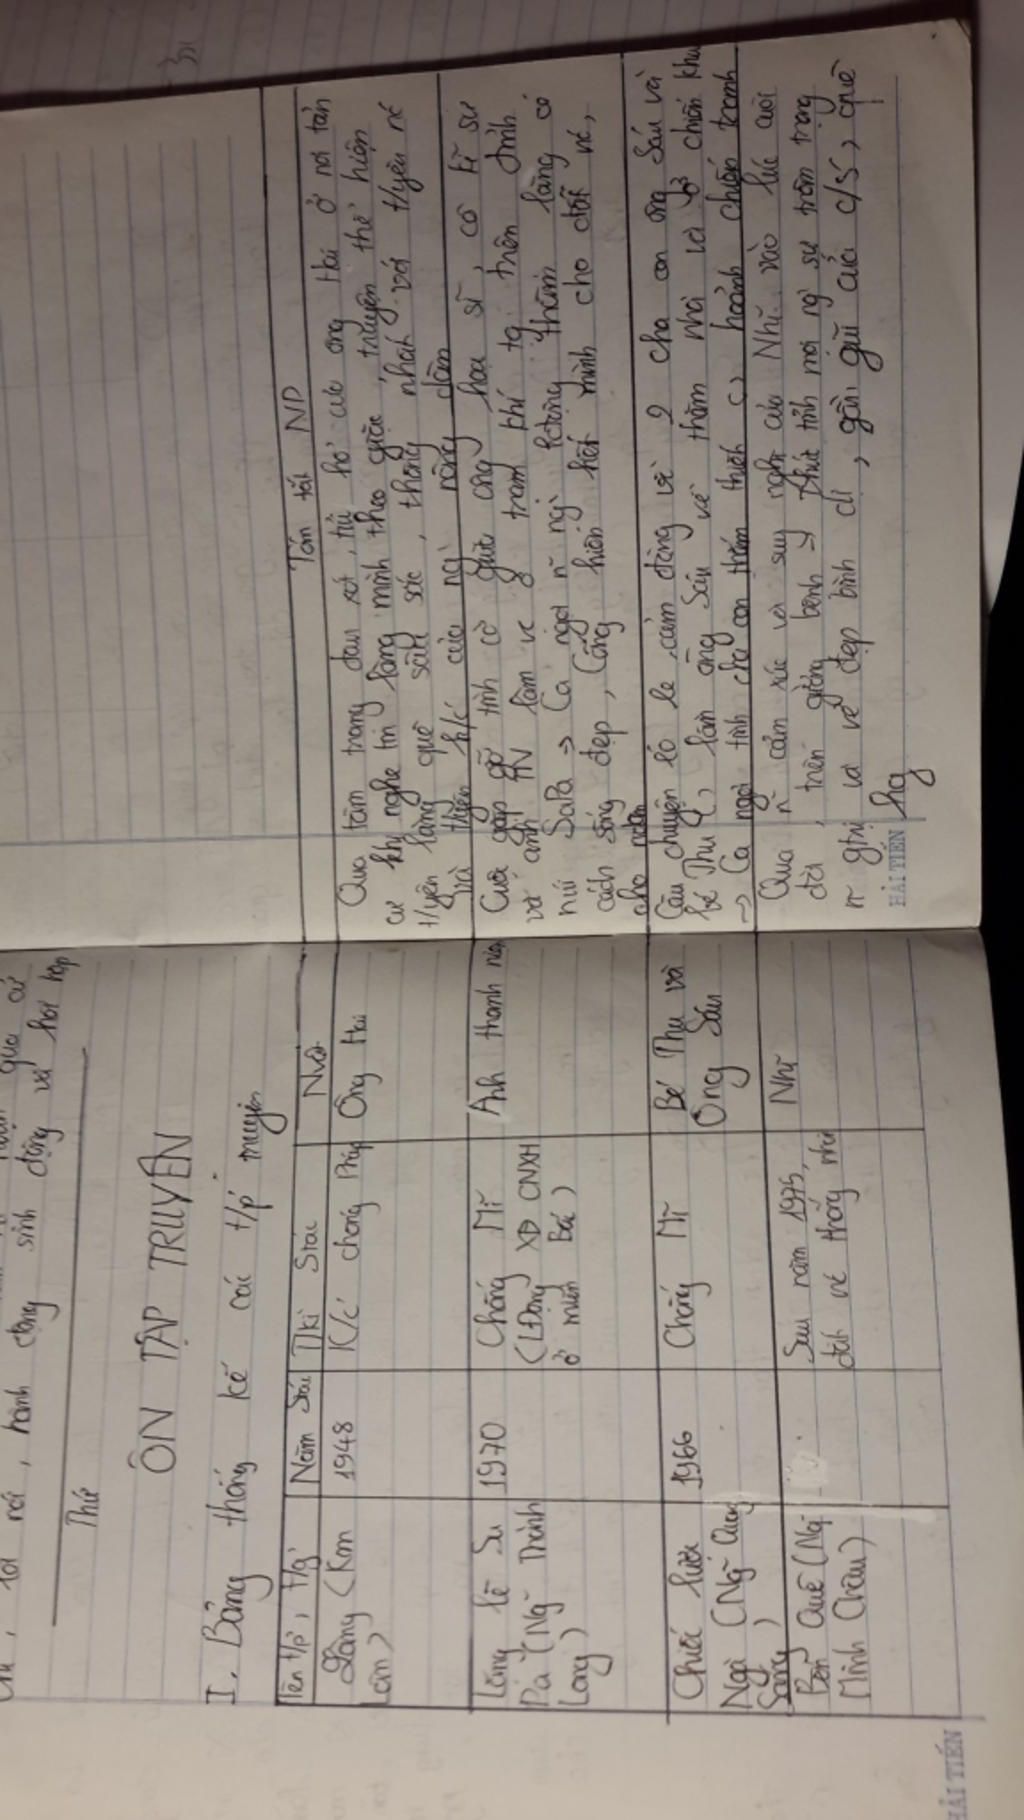 , lời nói, hành động sinh động và hồi hộp
Thứ
ÔN TẬP TRUYỆN
I. Bảng thống kê các t/p truyện
Tên t/p, t/g
Năm Stác
Tkì Stác
NVC
Tóm tắt ND
Làng (Kim
Lân)
1948
K/c chống Pháp
Ông Hai
Qua tâm trạng đau xót, tủi hổ của ông Hai ở nơi tản
cư khi nghe tin làng mình theo giặc, truyện thể hiện
t/yêu làng quê sâu sắc, thống nhất với t/yêu nc
và thần k/c của ng` nông dân
Lặng lẽ Sa
Pa (Ng~ Thành
Long)
1970
Chống Mĩ
(LĐộng XD CNXH
ở miền Bắc)
Anh thanh niên
Cuộc gặp gỡ tình cờ giữa ông họa sĩ, cô kĩ sư
và anh TN làm việc ở trạm khí tg trên đỉnh
núi SaPa → Ca ngợi n~ ng` thầm lặng có
cách sống đẹp, cống hiến hết mình cho đất nc,
cho nhân
Chiếc lược
Ngà (Ng~ Quang
Sáng)
1966
Chống Mĩ
Bé Thu và
Ông Sáu
Câu chuyện éo le, cảm động về 2 cha con ông Sáu và
bé Thu, lần ông Sáu về thăm nhà và ở chiến khu
→ Ca ngợi tình cha con thắm thiết hoảnh chiến tranh
Bến Quê (Ng~
Minh Châu)
Sau năm 1975,
đất nc thống nhất
Nhĩ
Qua n~ cảm xúc và suy nghĩ của Nhĩ vào lúc cuối
đời, trên giường bệnh → thức tỉnh mọi ng` sự trân trọng
n~ gtrị và vẻ đẹp bình dị, gần gũi của c/s, quê
hg
HẢI TIẾN
HẢI TIẾN